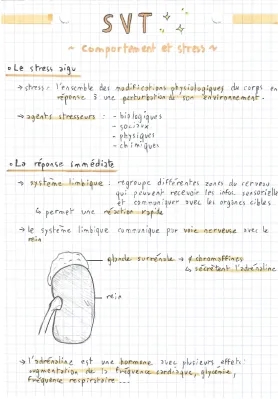 SVT
~ Comportement et stress ~
• Le stress aigu
→ stress : l'ensemble des modifications physiologiques du corps en
réponse à une perturbation de son environnement.
→ agents stresseurs : - biologiques
- sociaux
- physiques
- chimiques
• La réponse immédiate
→ système limbique : regroupe différentes zones du cerveau
qui peuvent recevoir les infos sensorielles
et communiquer avec les organes cibles
↳ permet une réaction rapide
→ le système limbique communique par voie nerveuse avec le
rein
glande surrénale → ¢ chromaffines
↳ sécrètent l'adrénaline
rein
→ l'adrénaline est une hormone avec plusieurs effets :
augmentation de la fréquence cardiaque, glycémie,
fréquence respiratoire ...